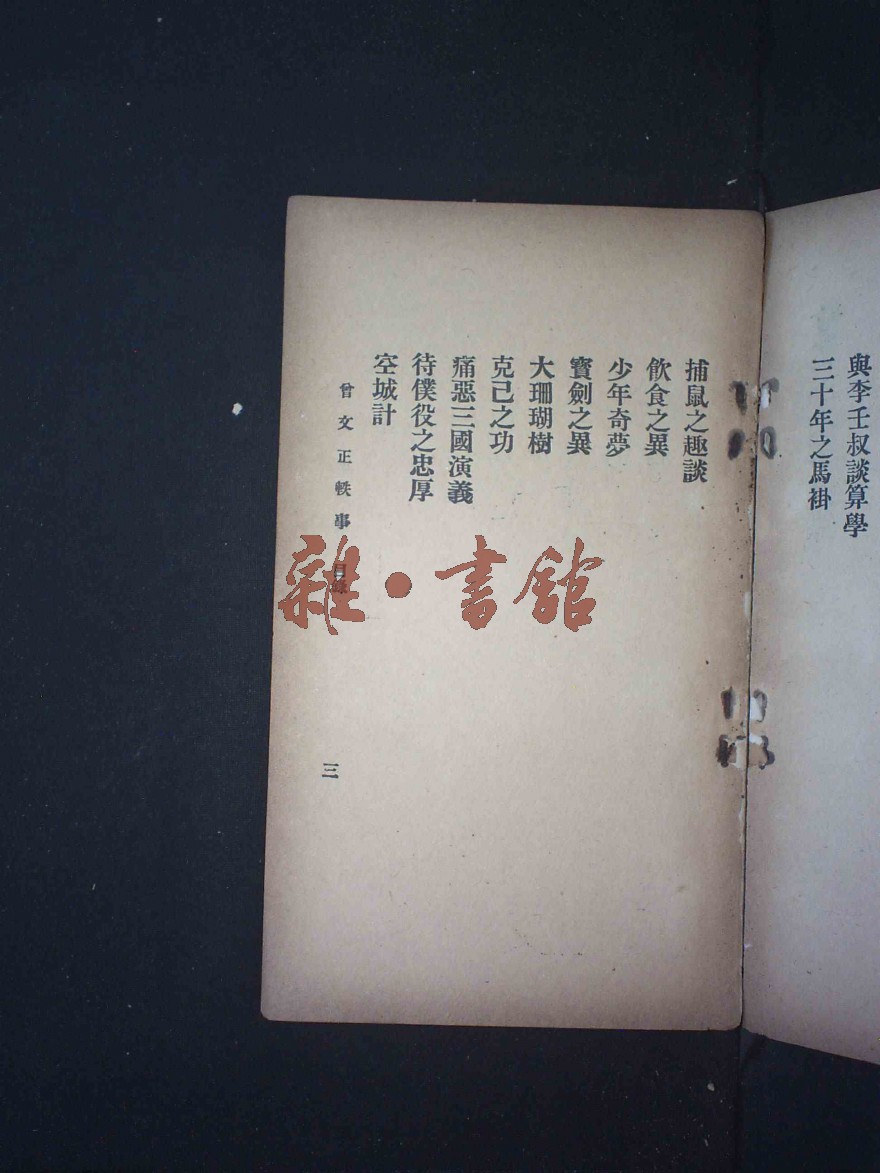 與李壬叔談算學
三十年之馬褂
捕鼠之趣談
飲食之異
少年奇夢
寶劍之異
大珊瑚樹
克己之功
痛惡三國演義
待僕役之忠厚
空城計
曾文正軼事 目錄
三
雜·書館